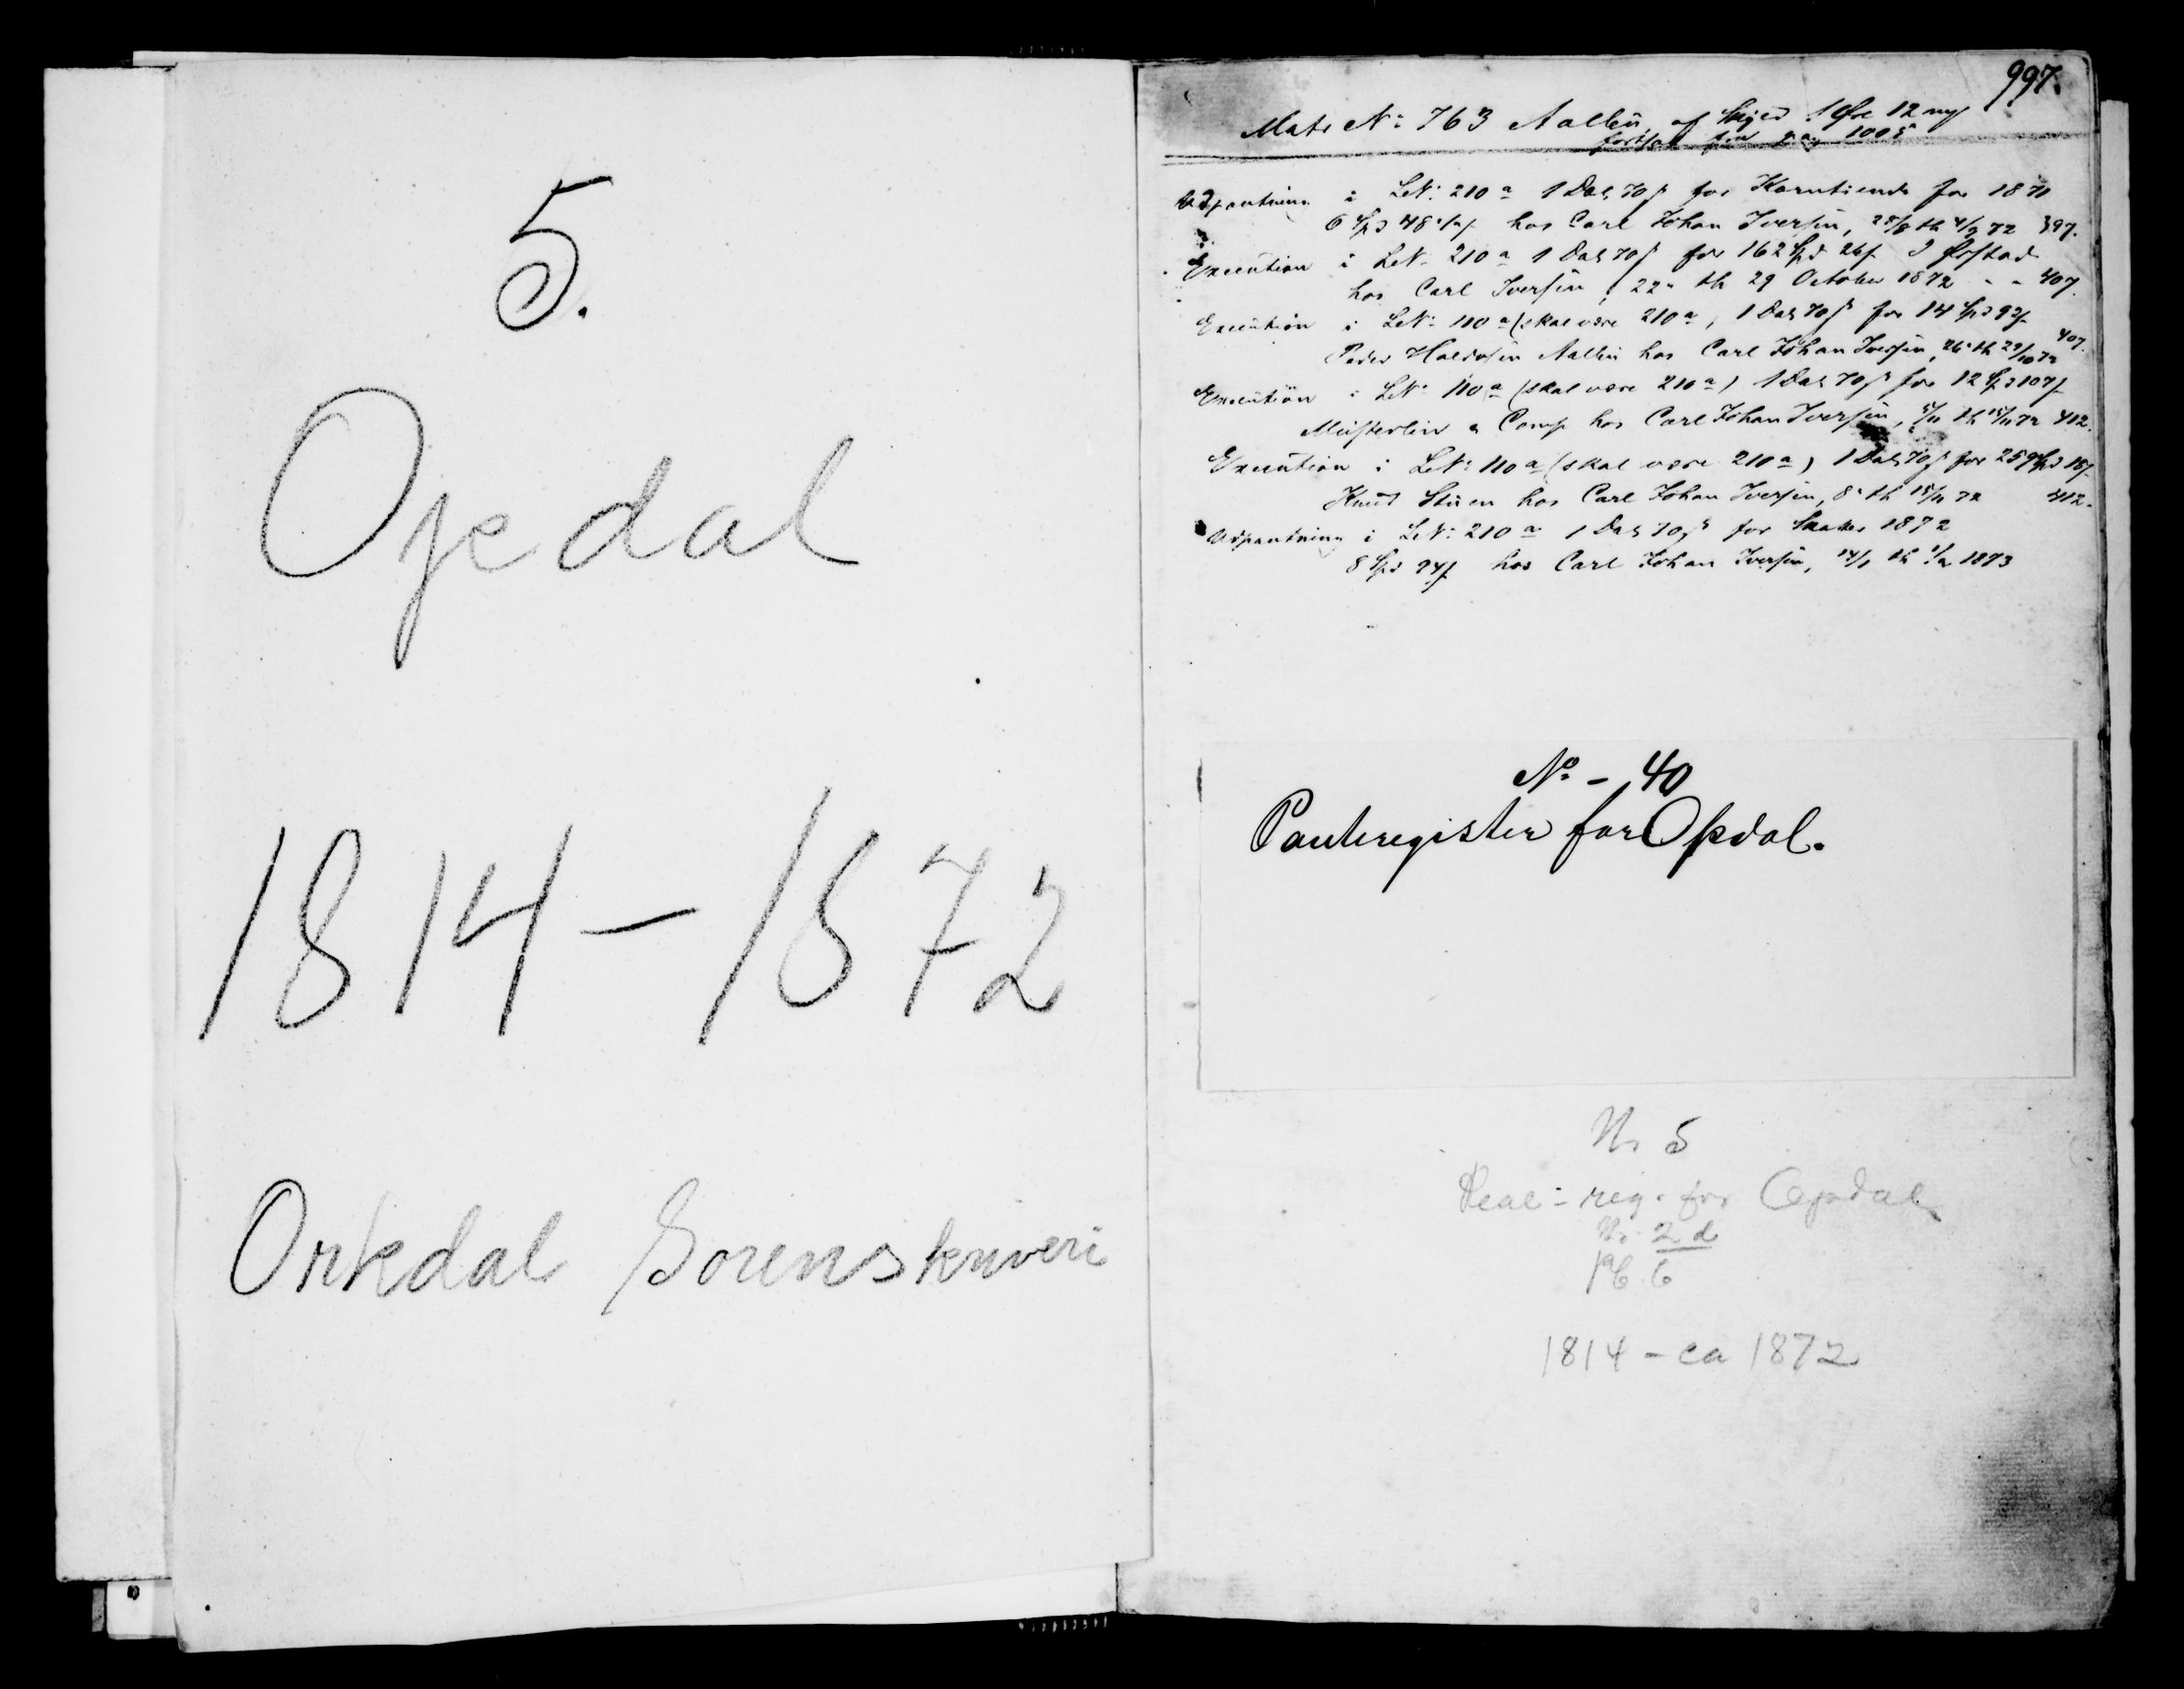 5.
Opdal
1814-1872
Orkdal Sorenskriveri
997.
Matr N: 763 Aalbu, af Skyld 1 Øre 12 mg
fortsat fra pag 1005
Udpantning i LN: 210 a 1 Dal, 70 ß for Korntiende for 1871
6 Spd 48 ß hos Carl Johan Iversen, 28/8 th 4/9 72 397.
Execution i LN. 210 a 1 Dal 70 ß for 162 Spd 26 ß
hos Carl Iversen, 22 th 29 October 1872 - - 407.
Execution i LN: 110 a (skal være 210 a), 1 Dal 70 ß for 14 Spd 93 ß
Peder Haldosen Aalbu hos Carl Johan Iversen, 26 th 29/10 72 407.
Execution i LN: 110 a (skal være 210 a) 1 Dal 70 ß for 12 Spd 107 ß
& Comp hos Carl Johan Iversen, 5/11 th 15/11 72 412.
Execution i LN: 110 a (skal være 210 a) 1 Dal 70 ß for 259 Spd 15 ß
Knud Stuen hos Carl Johan Iversen, 8 th 15/11 72 412.
Udpantning i LN: 210 a 1 Dal 70 ß for Skatter 1872
8 Spd 94 ß hos Carl Johan Iversen, 14/1 th 1/2 1873
No - 40
Panteregister for Opdal.
Nr 5
Real-reg. for Opdal
Nr. 2 d
pb. 6
1814 - ca 1872